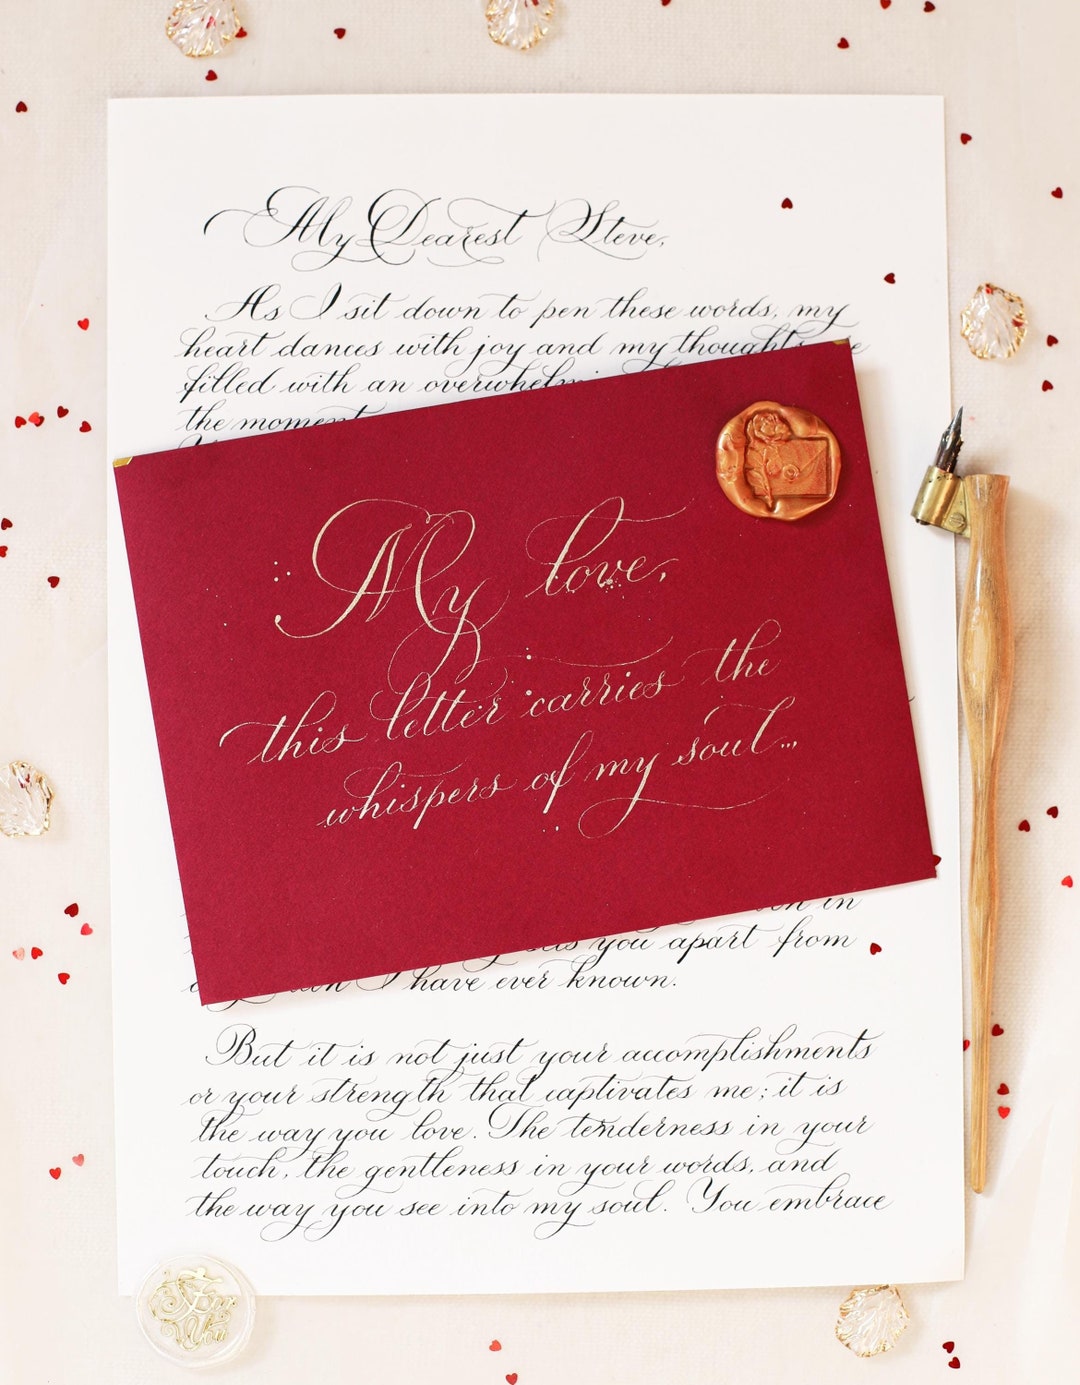 My Dearest Steve,
As I sit down to pen these words, my
heart dances with joy and my thoughts
filled with an
the moment
My love,
this letter carries the
whispers of my soul...
in
you apart from
I have ever known.
But it is not just your accomplishments
or your strength that captivates me; it is
the way you love. The tenderness in your
touch, the gentleness in your words, and
the way you see into my soul. You embrace
For
You